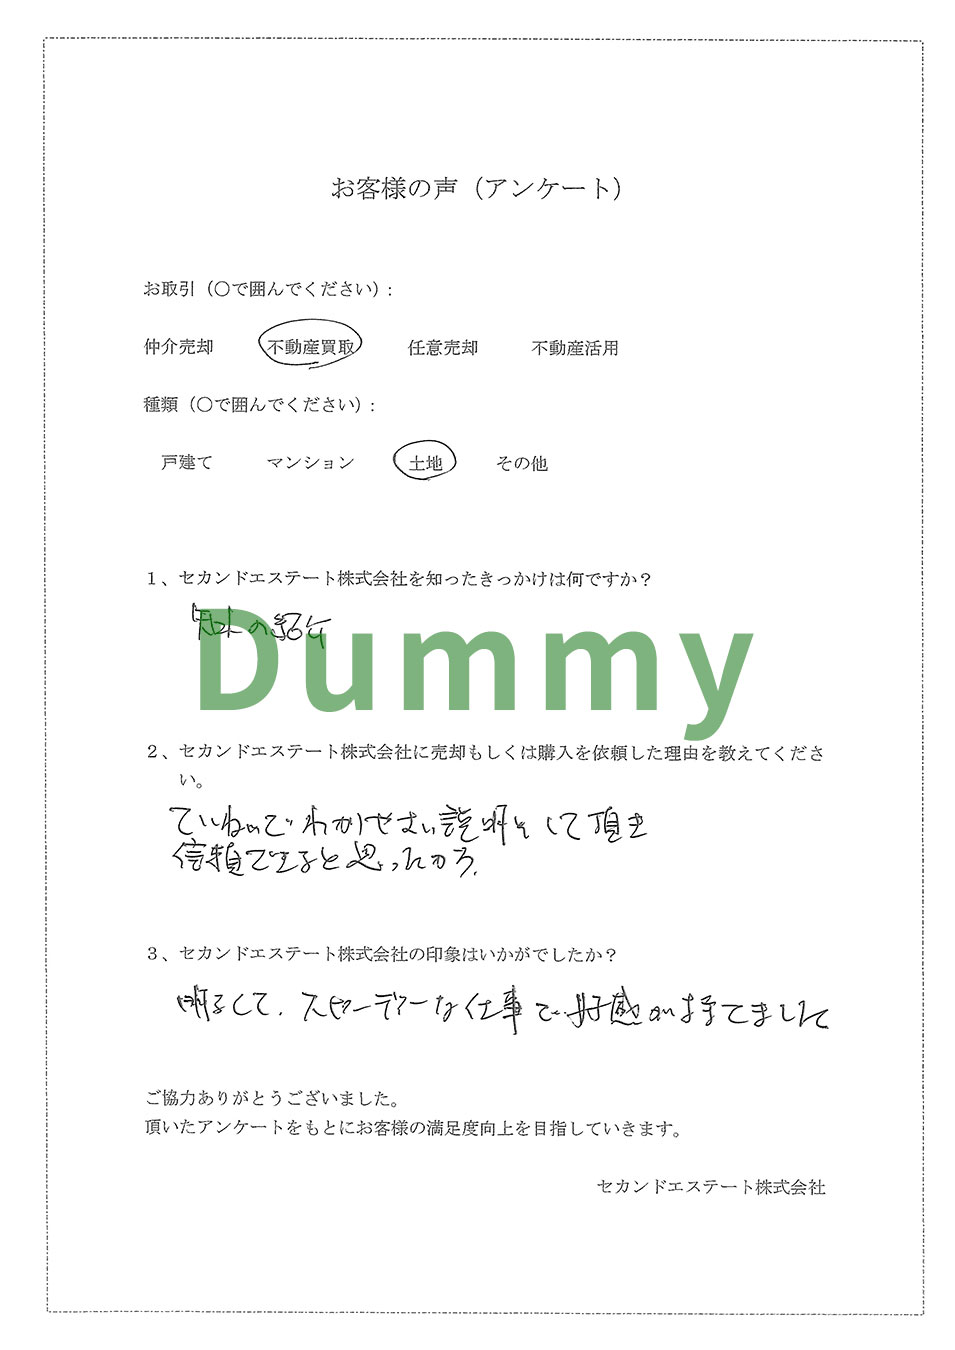 お客様の声（アンケート）
お取引（〇で囲んでください）:
仲介売却 不動産買取 任意売却 不動産活用
種類（〇で囲んでください）:
戸建て マンション 土地 その他
１、セカンドエステート株式会社を知ったきっかけは何ですか？
の紹介
Dummy
２、セカンドエステート株式会社に売却もしくは購入を依頼した理由を教えてくださ
い。
ていねいでわかりやすい説明をして頂き
信頼できると思ったから.
３、セカンドエステート株式会社の印象はいかがでしたか？
明るくて、スピーディーな仕事で好感が持てました
ご協力ありがとうございました。
頂いたアンケートをもとにお客様の満足度向上を目指していきます。
セカンドエステート株式会社